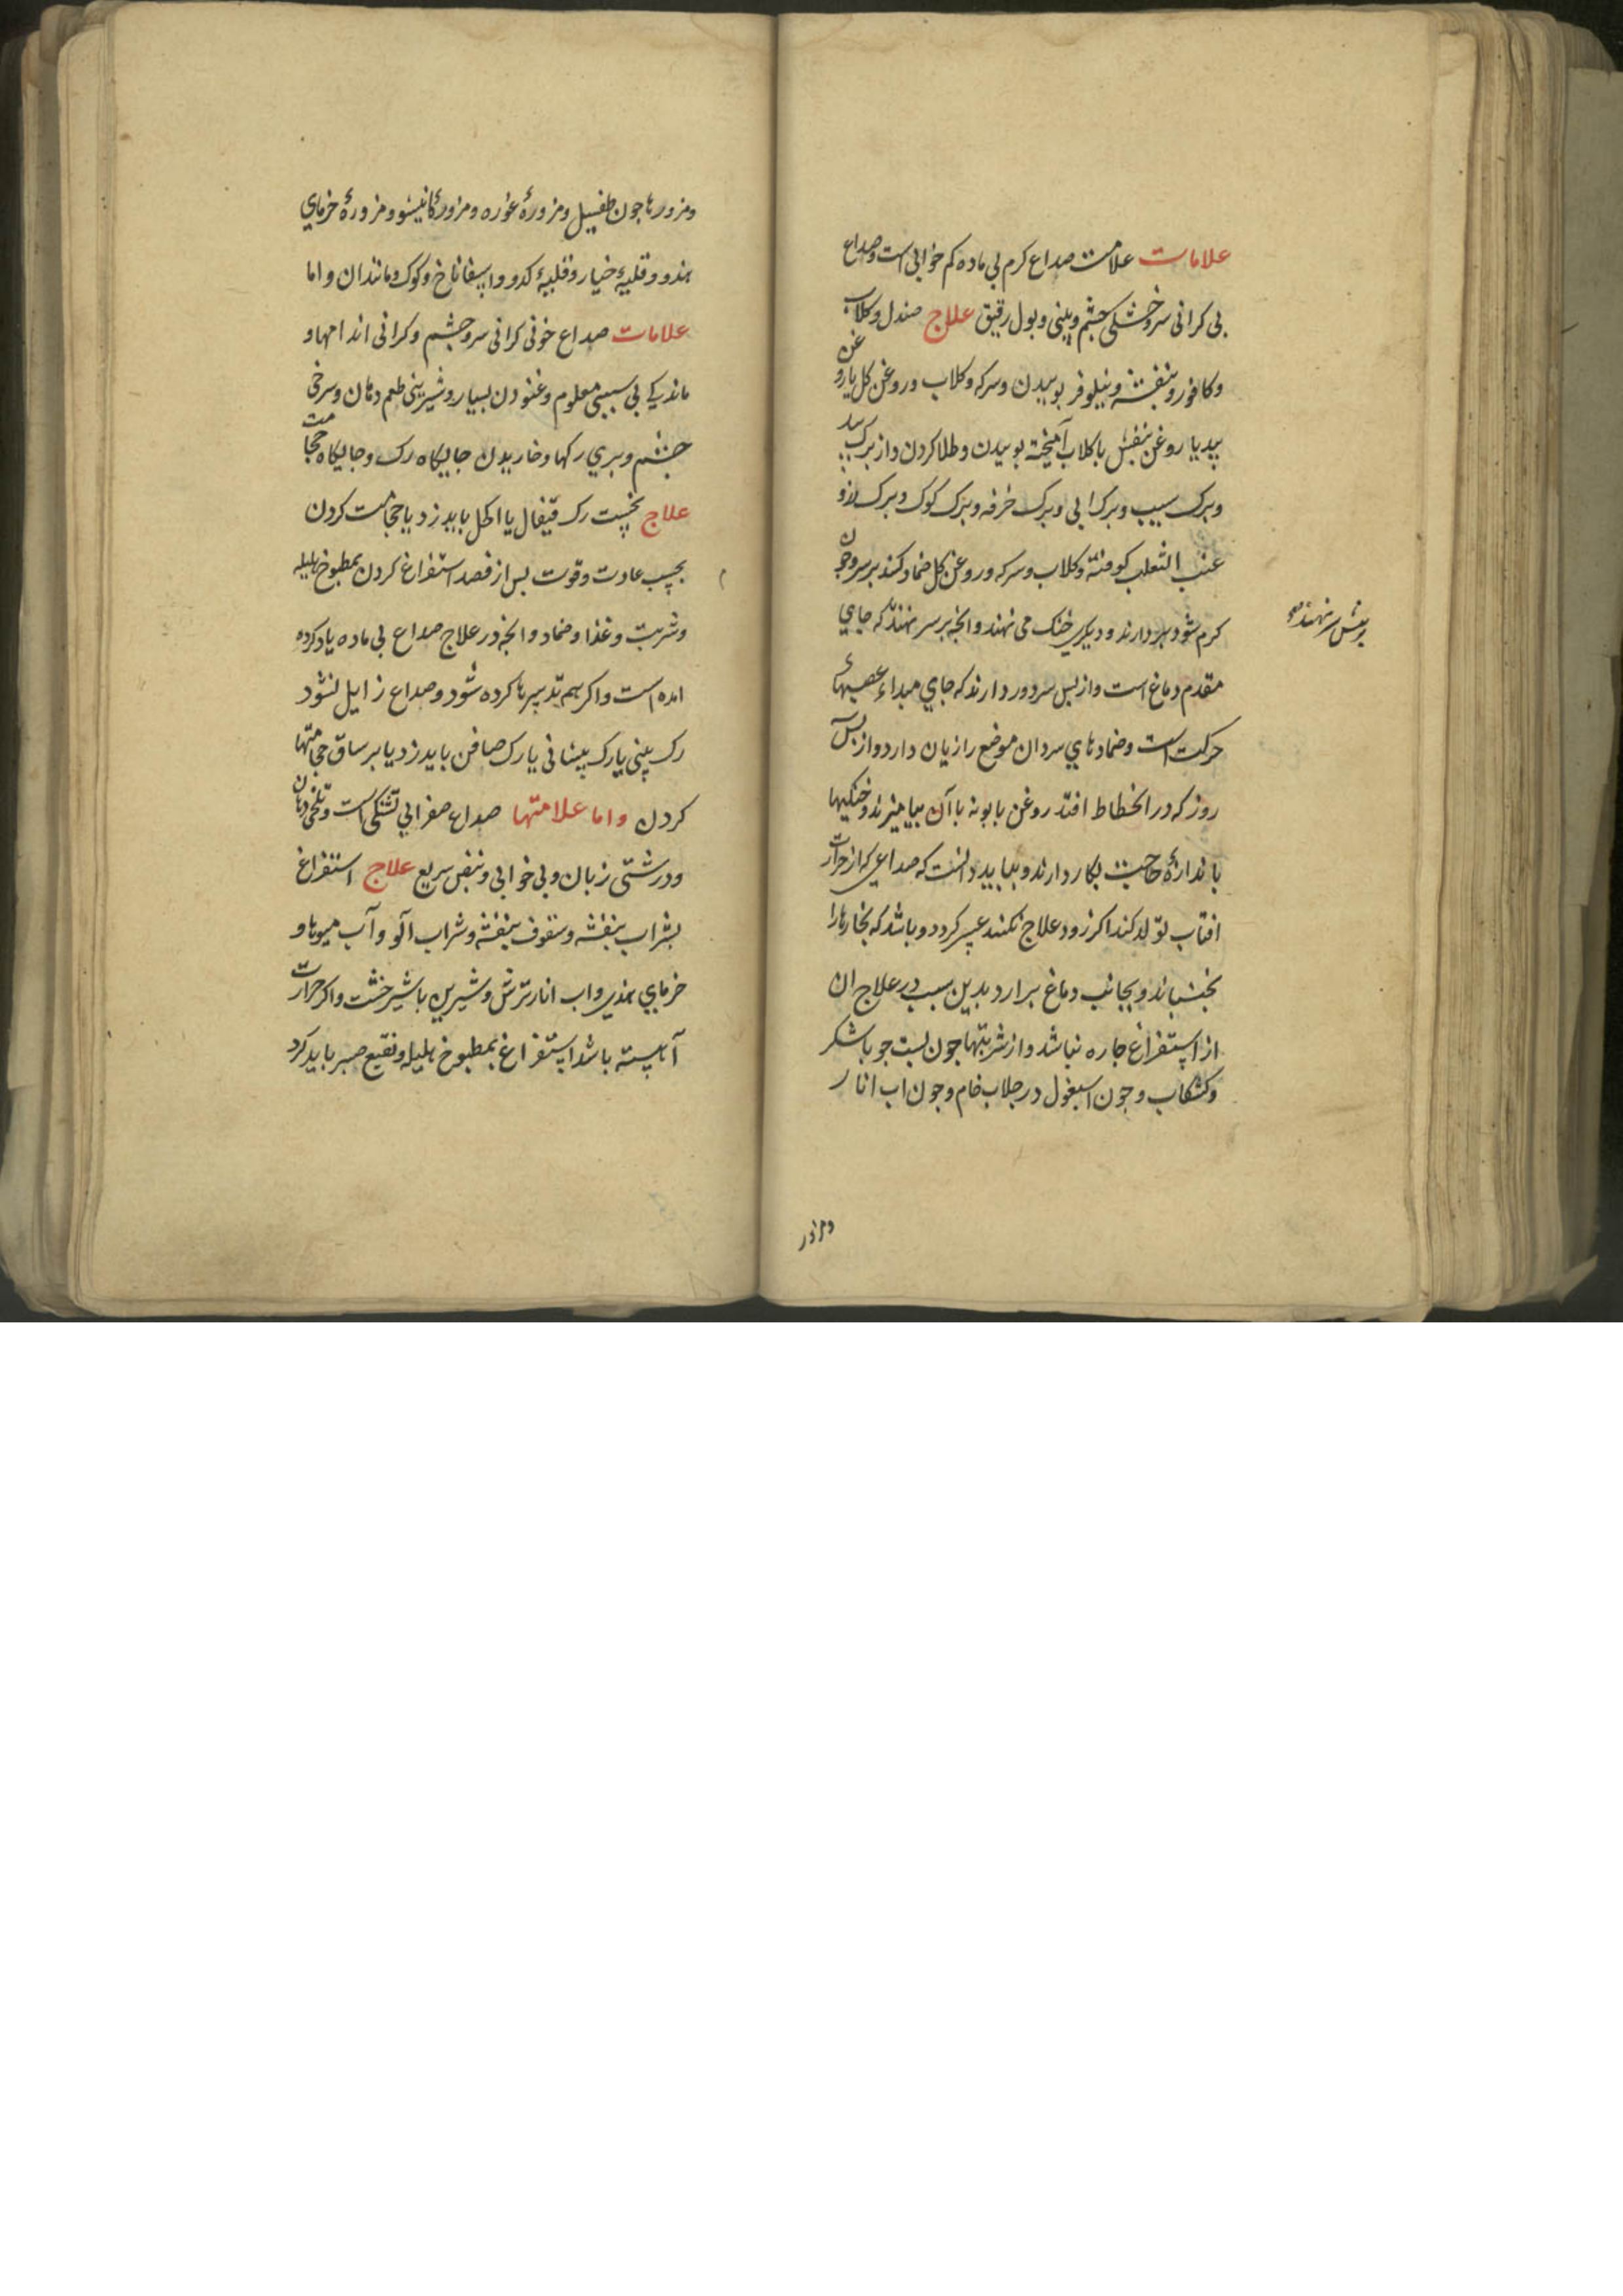 علامات علامت صداع کرم بی ماده کم خوابی است و صداع
بی کرانی سر و خشکی چشم و بینی و بول رقیق علاج صندل و کلاب
و کافور و بنفشه و نیلوفر بوییدن و سرکه و کلاب و روغن کل یا روغن
بید یا روغن بنفش با کلاب آمیخته بوییدن و طلا کردن و از برک بید
و برک سیب و برک ابی و برک خرفه و برک کوک و برک رزو
عنب الثعلب کوفته و کلاب و سرکه و روغن کل ضماد کنند بر سر و چون
کرم شود بردارند و دیکری خنک می نهند و انچه بر سر نهند که جای
بر پیش سر نهند
مقدم دماغ است و از بس سر دور دارند که جای مبداء عصبهاء
حرکت است و ضمادهای سرد ان موضع را زیان دارد و از بس
روز که در انحطاط افتد روغن بابونه با آن بیامیزند و خنکیها
باندازهٔ حاجت بکار دارند و بباید دانست که صداعی که از حرارت
افتاب تولد کند اکر زود علاج نکنند عسیر کردد و باشد که بخارها را
بجنباند و بجانب دماغ برارد بدین سبب در علاج ان
از استفراغ چاره نباشد و از شربتها جون بست جو باشکر
و کشکاب و جون اسبغول در جلاب خام و جون اب انار
و مزور
و مزورها جون طفشیل و مزورهٔ غوره و مزورهٔ کانیشو و مزورهٔ خرمای
هندو و قلیهٔ خیار و قلیهٔ کدو و اسفاناخ و کوک و مانندان و اما
علامات صداع خونی کرانی سر و چشم و کرانی اندامها و
ماندیکی بی سببی معلوم و غنودن بسیار و شیرینی طعم دهان و سرخی
چشم و بری رکها و خاریدن جایکاه رک و جایکاه حجامت
علاج نخست رک قیفال یا اکحل باید زد یا حجامت کردن
بحسب عادت و قوت بس از فصد استفراغ کردن بمطبوخ هلیله
و شربت و غذا و ضماد و انچه در علاج صداع بی ماده یاد کرده
امده است و اکر هم تدبیرها کرده شود و صداع زایل نشود
رک بینی یا رک بیشانی یا رک صافن باید زد یا بر ساق حجامتها
کردن و اما علامتها صداع صفرایی تشنکی است و تلخی دهان
و درشتی زبان و بی خوابی و نبض سریع علاج استفراغ
بشراب بنفشه و سفوف بنفشه و شراب الو و آب میوها و
خرمای هندی و اب انار ترش و شیرین با شیرخشت و اکر حرارت
آهسته باشد استفراغ بمطبوخ هلیله و نقیع صبر باید کرد